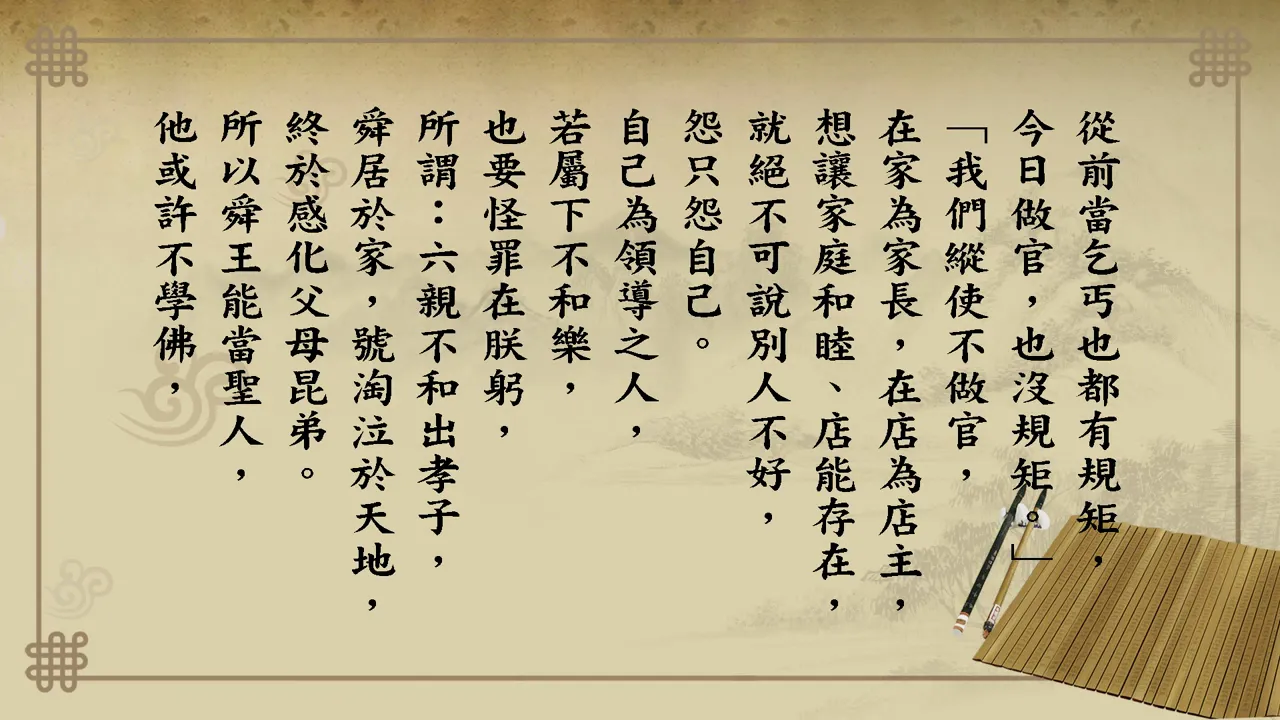 從前當乞丐也都有規矩，
今日做官，也沒規矩。」
「我們縱使不做官，
在家為家長，在店為店主，
想讓家庭和睦、店能存在，
就絕不可說別人不好，
怨只怨自己。
自己為領導之人，
若屬下不和樂，
也要怪罪在朕躬，
所謂：六親不和出孝子，
舜居於家，號淘泣於天地，
終於感化父母昆弟。
所以舜王能當聖人，
他或許不學佛，